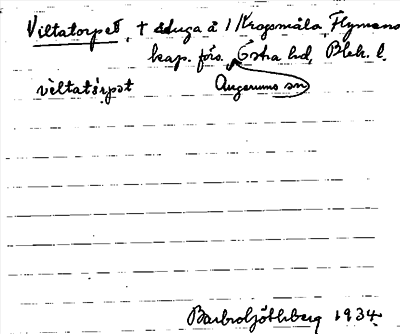 Viltatorpet, † äduga å 1 Krogsmåla, Flymens
kap. förs. Östra hd, Blek. l.
vèltatårpət Augerums sn
Barbro Göthberg 1934